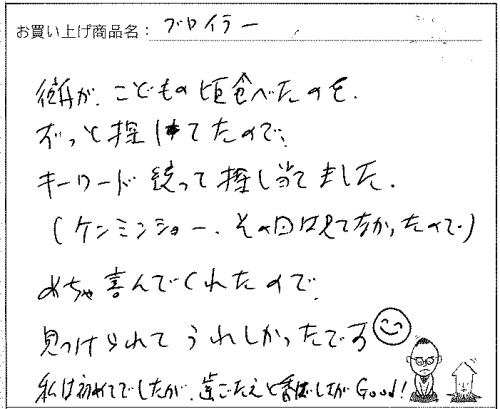 お買い上げ商品名： ブロイラー
彼が、こどもの頃食べたのを、
ずっと探してたので、
キーワード絞って探し当てました。
（ケンミンショー、その日は見てなかったので）
めちゃ喜んでくれたので、
見つけられてうれしかったです
私は初めてでしたが、歯ごたえと香ばしさが Good!